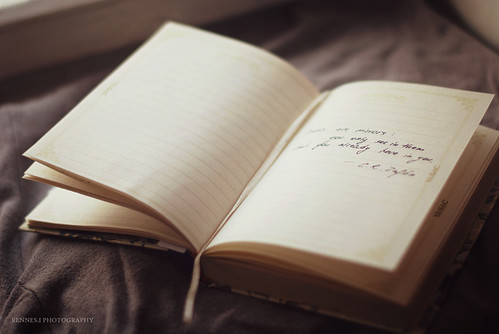 Books are mirrors:
you only see in them
what you already have in you
— C.R. Zafón
RENNES.I PHOTOGRAPHY